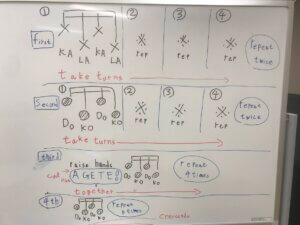 ① ② ③ ④
first
KA LA KA LA
rep rep rep
repeat twice
take turns
① ② ③ ④
Second
Do KO Do KO
rep rep rep
repeat twice
take turns
third
raise hands
AGETE!
Do KO Do KO
repeat 4 times
together
4th
Do KO Do KO
repeat
times
Crescendo